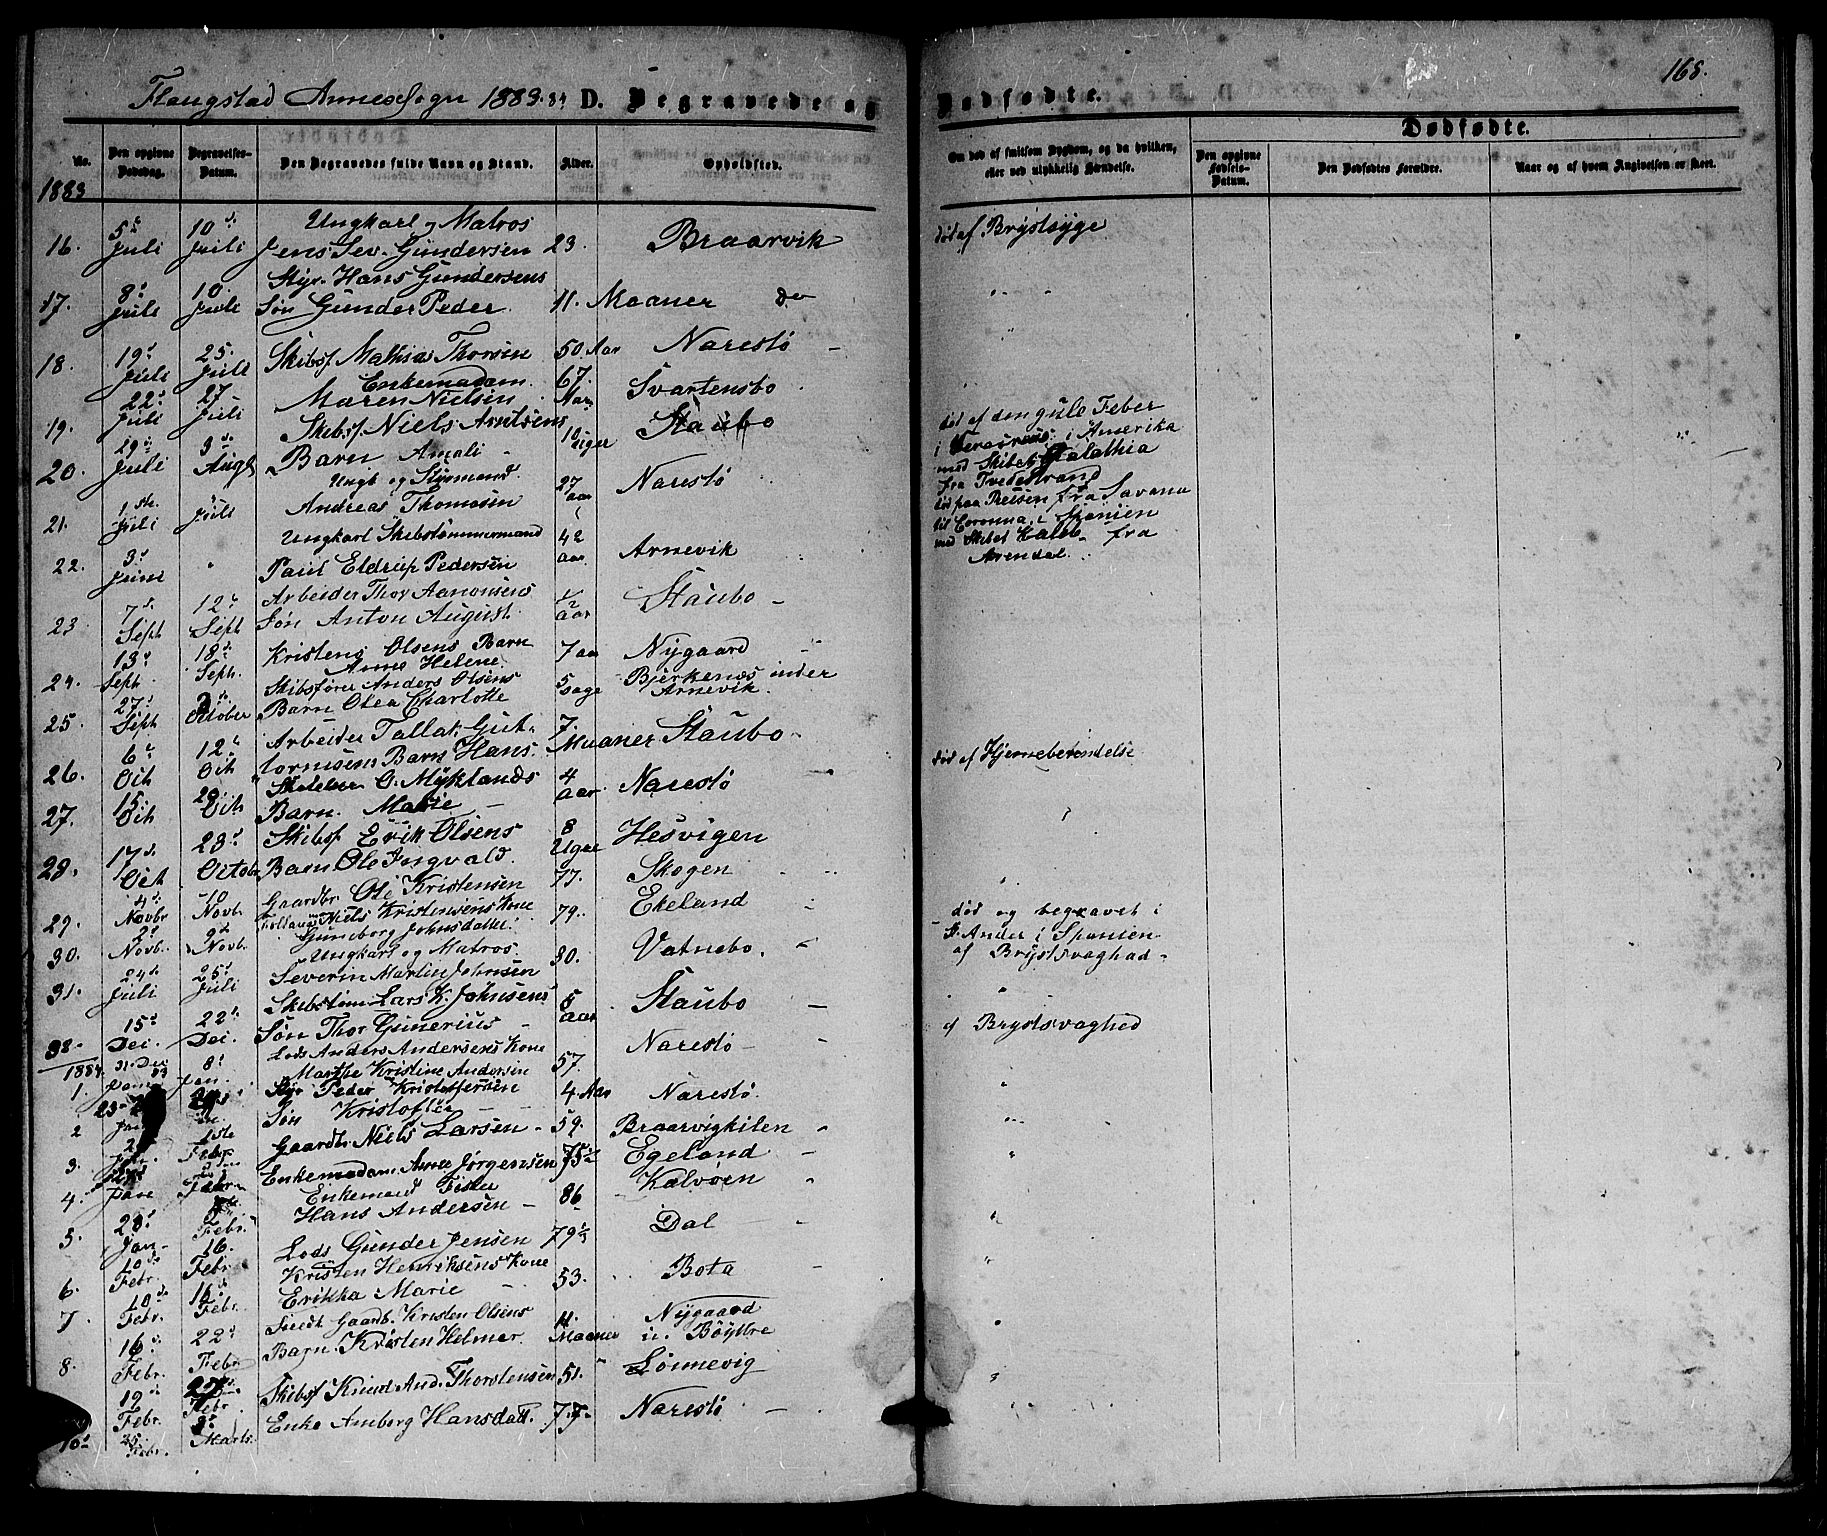 Flangstad Annexsogn 1883.84 D. Begravede og Dødfødte. 168.
Dødfødte.
No. Den opgivne Dødsdag. Begravelses-Datum. Den Begravedes fulde Navn og Stand. Alder. Opholdssted. Om død af smitsom Sygdom, og da hvilken, eller ved ulykkelig Hændelse. Den opgivne Fødsels-Datum. Den Dødfødtes Forældre. Naar og af hvem Angivelsen er skeet.
1883
Ungkarl og Matros
16. 5te Juli 10de Juli Jens Sev. Gundersen 23. Braarvik død af Brystsyge
Styr. Hans Gundersens
17. 8de Juli 10 Juli Søn Gunder Peder 11. Maaner do
18. 19de Juli 25. Juli Skibsf. Mathias Thorsen 50 Aar Narestø
Enkemadam
19. 22de Juli 27 Juli Maren Nielsen 67. Aar Svartensbo
Skibsf. Niels Arntsens
20. 29de Juli 3de Augs Barn Amali 10 Uger Staubo
Ungk og Styrmand
21. 1ste Juli Juli Andreas Thomasen 27 aar Narestø
død af den gule Feber
i i Amerika
med Skibet Galathia
fra Tvedestrand
Ungkarl Skibstømmermand
22. 3de Juni Paul Eldrup Pedersen 42 aar Arnevik
død paa Reisen fra Savana
til Corunna i Spanien
med Skibet fra
Arendal.
Arbeider Thor Aanonsens
23 7de Septb 12te Septb Søn Anton August 1/2 aar Staubo
Kristens Olsens Barn
24. 13de Septb. 18de Septb. Anne Helene 7 aa Nygaard
Skibsfører Anders Olsens
25. 27de Septb 2de October Barn Olea Charlotte 5 Dage Bjerkenes under Arnevik.
Arbeider Tallak Gut-
26. 6te Octb 12te Octb tormsens Barn Hans. 7. Maaner Staubo død af Hjernebetendelse
O. Myklands
27. 15 Octb 20 Octb Barn Marie 4 aar Narestø
Skibsf Erik Olsens
28. 17de Octb 23de Octob Barn Ole Ingvald. 8 Uger Hesvigen
29. 4de Novbr 10 Novb. Gaardbr Ole Kristensen 77. Skogen
Niels Kristensens Kone
30. 2de Novb. 9de Novb. Gunborg Johnsdatter 79. Ekeland
Ungkarl og Matros
31. 24de Juli 25de Juli Severin Martin Johnsen 30. Vatnebo.
død og begravet i
St. Ander i Spanien
af Brystsvaghed
Skibstøm Lars K. Johnsens
15de Dec. 22de Dec. Søn Thor Gunerius 5 aar Staubo
1884.
Lods Anders Andersens Kone
1. 31. Dec 83 8de Jan. Marthe Kristine Andersen 57. Narestø af Brystsvaghed
Styr Peder Kristoffersen
2 Søn Kristoffer 4 Aar Narestø.
3. 1ste Febr. Gaardbr. Niels Larsen 59. Braarvigkilen
4. Jan Febr Enkemadam Anne Jørgensen 75 1/2 Egeland
Enkemand Fisker
5. 28de Jan Febr. Hans Andersen 86 Kalvøen
10de Febr. 16. Febr. Lods Gunder Jensen 79 1/3 Dal
Kristen Henriksens Kone
6. 10de Febr. 16de Febr. Erikka Marie 53. Bota
7. Gaardb. Kristen Olsens
16de Febr. 22de Febr Barn Kristen Helmer. 11. Maaner Nygaard u. Bøylle
8. 19de Febr. 27de Febr. Skibsf Knud And. Thorstensen 51. Lønnevig
10de 25. Febr. Marts Enke Amborg Hansdatt. 77. Narestø